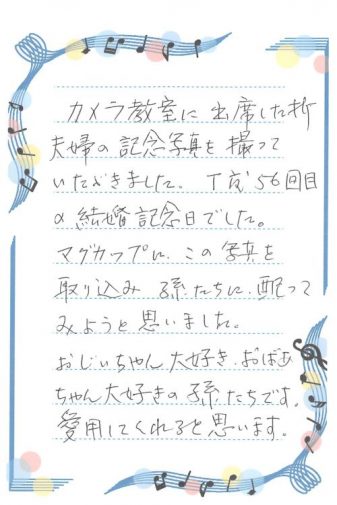 カメラ教室に出席した折
夫婦の記念写真を撮って
いただきました。丁度56回目
の結婚記念日でした。
マグカップに、この写真を
取り込み 孫たちに、配って
みようと思いました。
おじいちゃん大好き、おばあ
ちゃん大好きの孫たちです。
愛用してくれると思います。